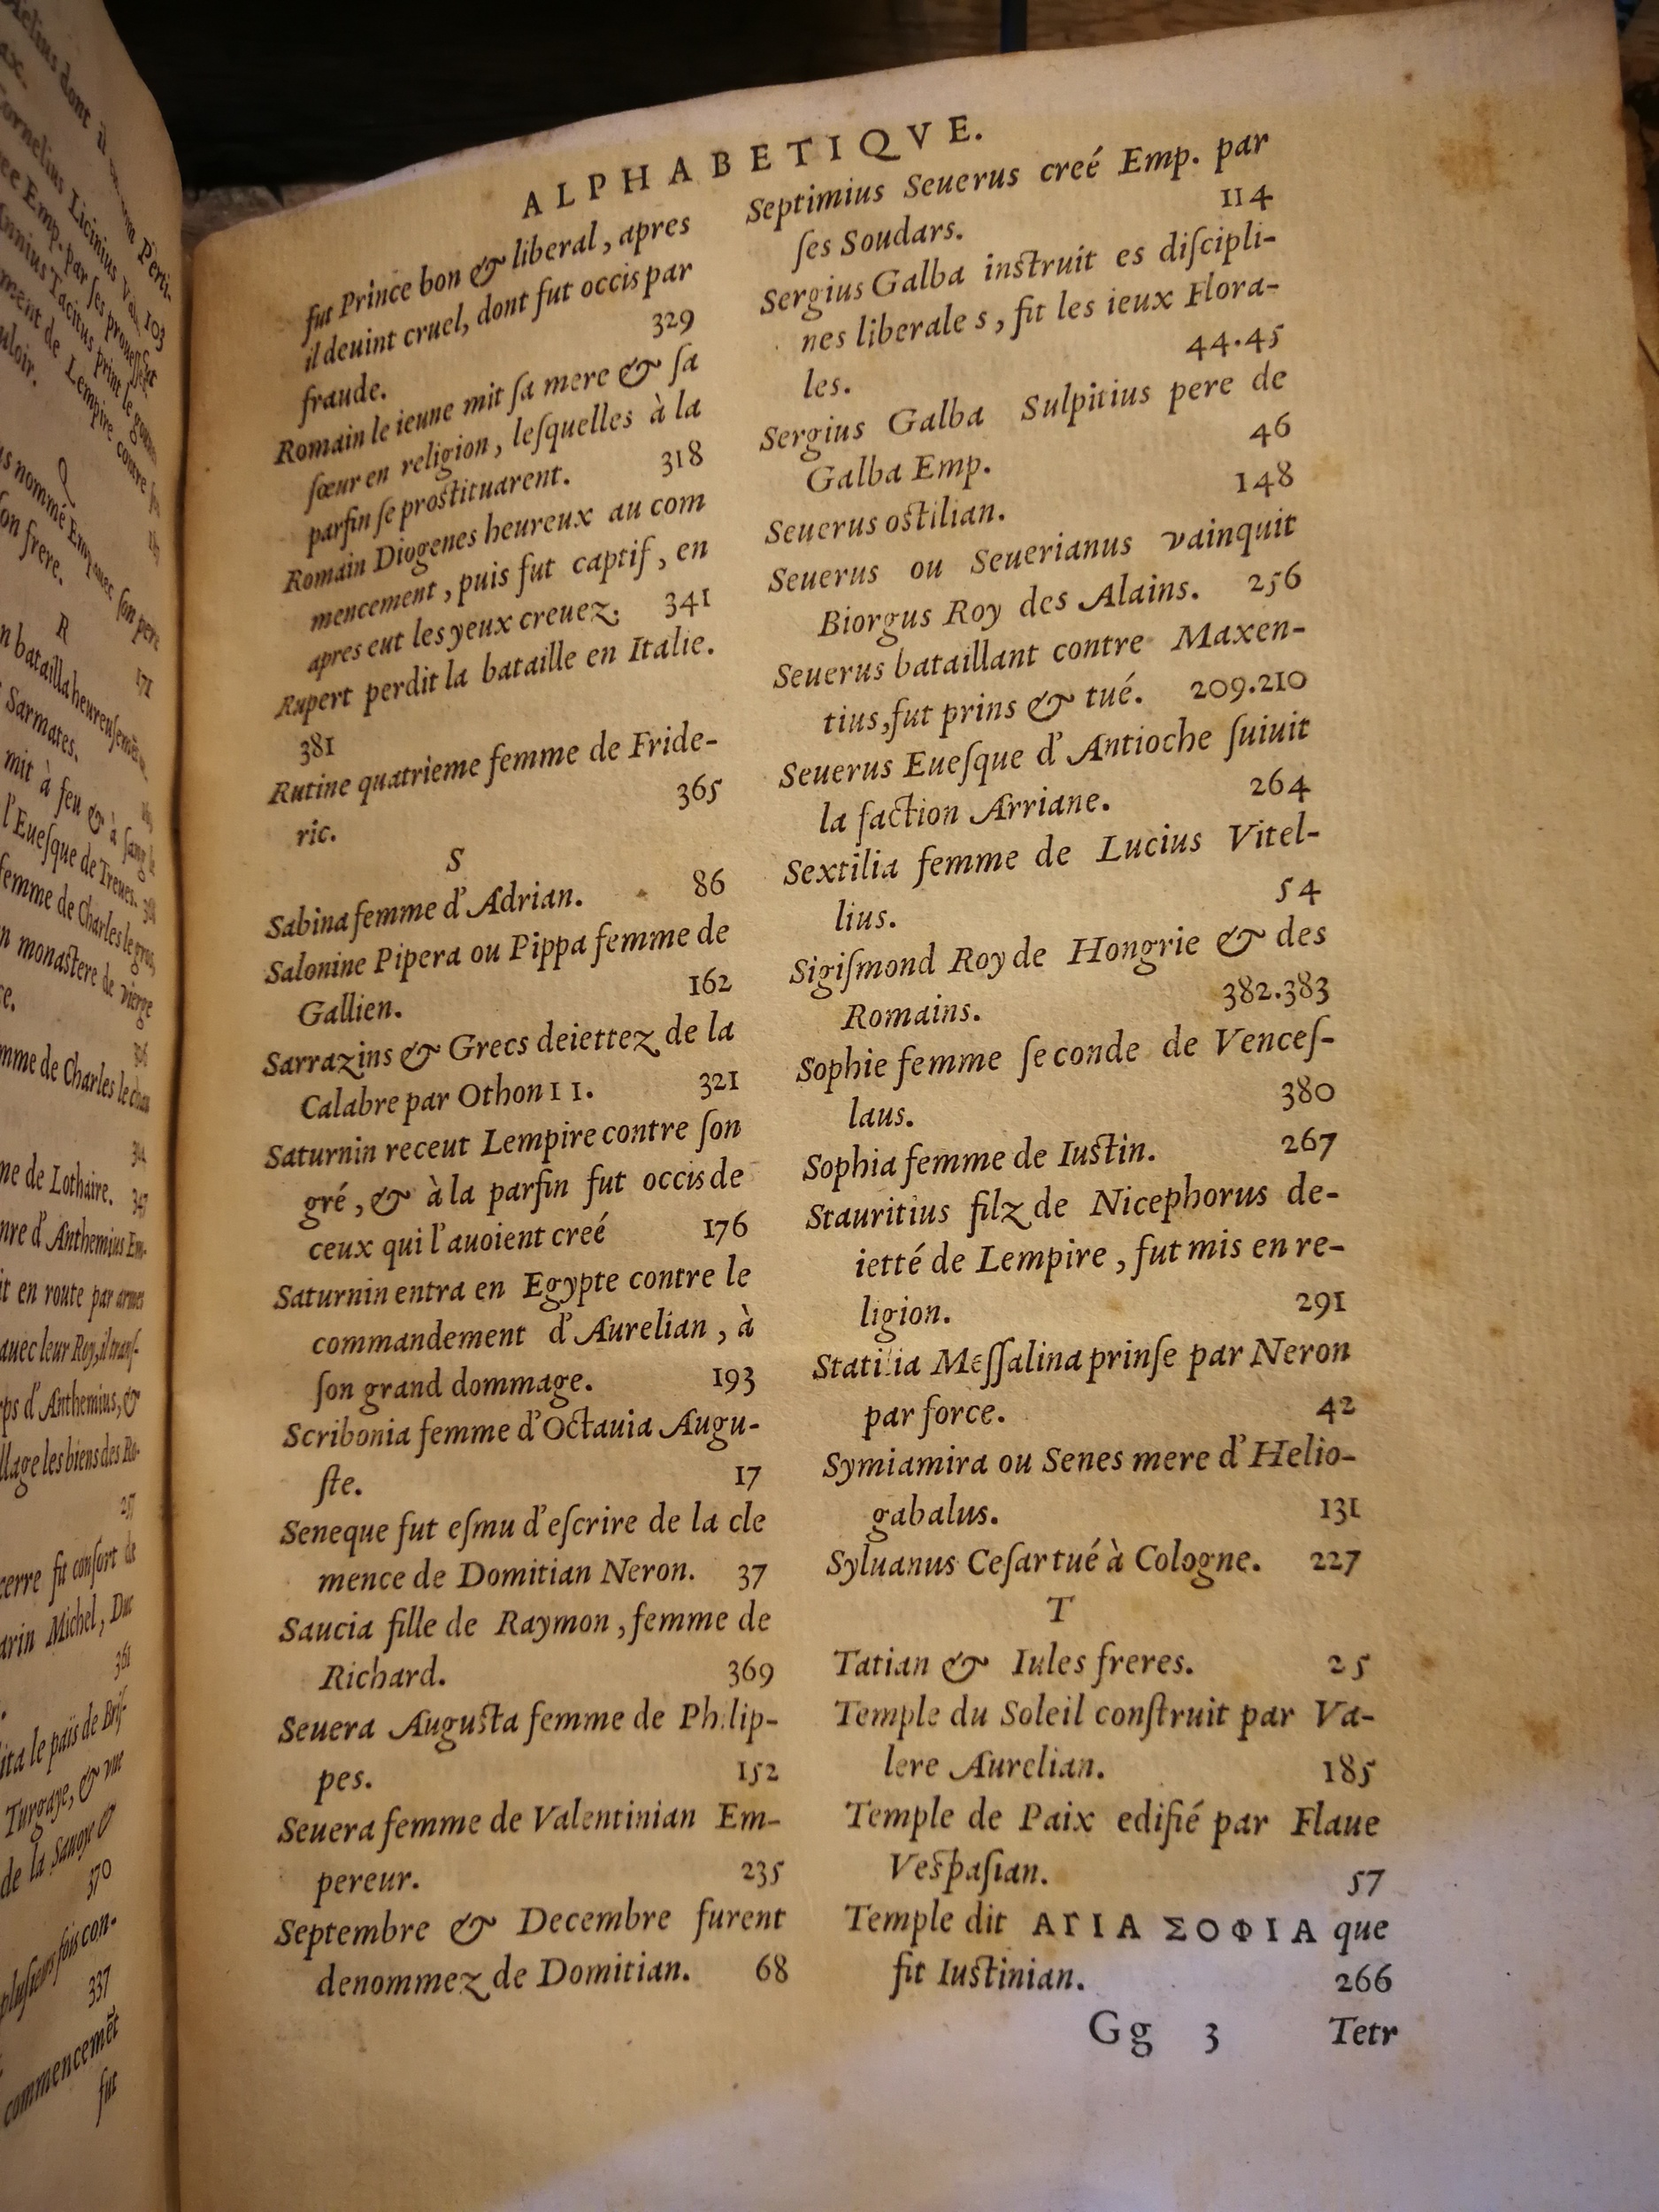 Pèrti-
103
Q
R
171
Sarmates.
mit à feu & à sang le
l'Euesque de Treues.
femme de Charles le gros
n monastere de vierge
mme de Charles le chau
ne de Lothaire. 347
nre d'Anthemius Em-
it en route par armes
auec leur Roy, il transf-
rps d'Anthemius, &
llage les biens des Ro-
257
cerre fit consort de
arin Michel, Duc
361
ita le païs de Bris-
Turgaye, & vne
de la Sauoye &
370
plusieurs fois con-
337
commencemẽt
fut
ALPHABETIQVE.
fut Prince bon & liberal, apres
il deuint cruel, dont fut occis par
fraude. 329
Romain le ieune mit ſa mere & ſa
ſœur en religion, leſquelles à la
parfin ſe proſtituarent. 318
Romain Diogenes heureux au com
mencement, puis fut captif, en
apres eut les yeux creuez. 341
Rupert perdit la bataille en Italie.
381
Rutine quatrieme femme de Fride-
ric. 365
S
Sabina femme d'Adrian. 86
Salonine Pipera ou Pippa femme de
Gallien. 162
Sarrazins & Grecs deiettez de la
Calabre par Othon II. 321
Saturnin receut Lempire contre ſon
gré, & à la parfin fut occis de
ceux qui l'auoient creé 176
Saturnin entra en Egypte contre le
commandement d'Aurelian, à
ſon grand dommage. 193
Scribonia femme d'Octauia Augu-
ſte. 17
Seneque fut eſmu d'eſcrire de la cle
mence de Domitian Neron. 37
Saucia fille de Raymon, femme de
Richard. 369
Seuera Auguſta femme de Philip-
pes. 152
Seuera femme de Valentinian Em-
pereur. 235
Septembre & Decembre furent
denommez de Domitian. 68
Septimius Seuerus creé Emp. par
ſes Soudars. 114
Sergius Galba inſtruit es diſcipli-
nes liberale s, fit les ieux Flora-
les. 44.45
Sergius Galba Sulpitius pere de
Galba Emp. 46
Seuerus oſtilian. 148
Seuerus ou Seuerianus vainquit
Biorgus Roy des Alains. 256
Seuerus bataillant contre Maxen-
tius, fut prins & tué. 209.210
Seuerus Eueſque d'Antioche ſuiuit
la faction Arriane. 264
Sextilia femme de Lucius Vitel-
lius. 54
Sigiſmond Roy de Hongrie & des
Romains. 382.383
Sophie femme ſeconde de Venceſ-
laus. 380
Sophia femme de Iuſtin. 267
Stauritius filz de Nicephorus de-
ietté de Lempire, fut mis en re-
ligion. 291
Statilia Meſſalina prinſe par Neron
par force. 42
Symiamira ou Senes mere d'Helio-
gabalus. 131
Syluanus Ceſar tué à Cologne. 227
T
Tatian & Iules freres. 25
Temple du Soleil conſtruit par Va-
lere Aurelian. 185
Temple de Paix edifié par Flaue
Veſpaſian. 57
Temple dit ΑΓΙΑ ΣΟΦΙΑ que
fit Iuſtinian. 266
Gg 3 Tetr